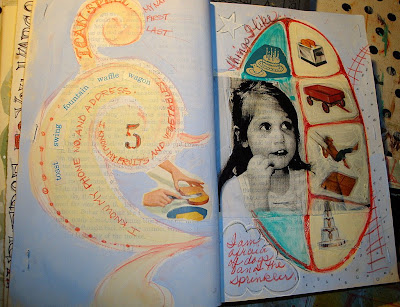 I CAN SPELL
FIRST
LAST
toast swing fountain waffle wagon
I KNOW MY PHONE NO. AND ADDRESS.
I KNOW MY FRUITS AND VEGETABLES
5
things I like
I am
afraid
of dogs
and the
sprinkler.